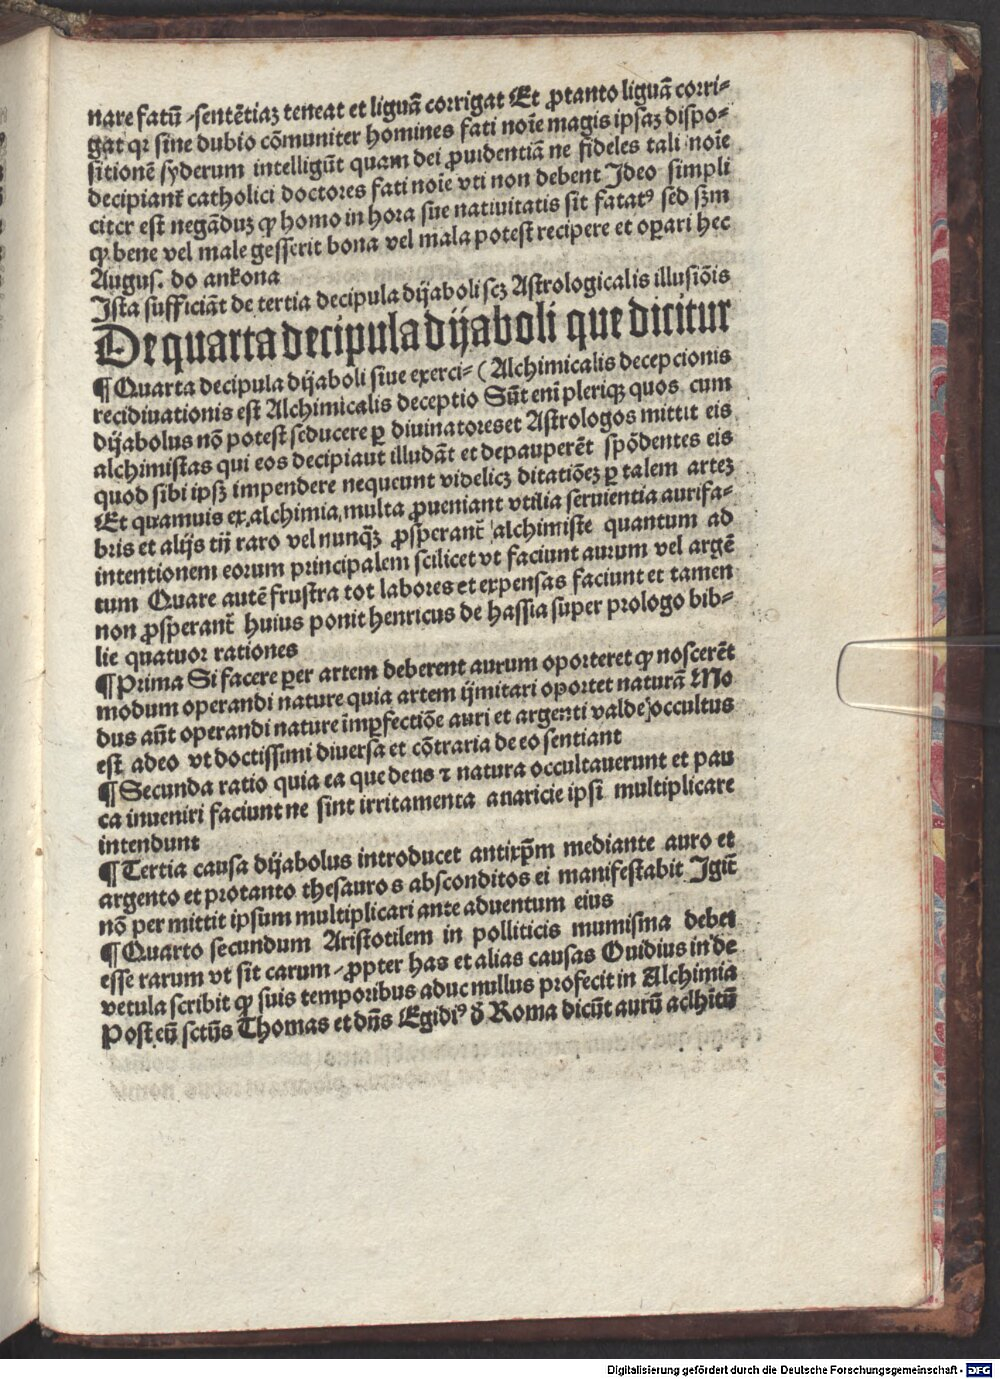 nare fatū ⸗sentētiaꝫ teneat et liguā corrigat Et ꝓtanto liguā corri⸗
gat qꝛ sine dubio cōmuniter homines fati noīe magis ipsaꝫ dispo⸗
sitionē syderum intelligūt quam dei ꝓuidentiā ne fideles tali noīe
decipiant᷑ catholici doctores fati noīe vti non debent Ideo simpli
citer est negāduꝫ ꝙ homo in hora sue nativitatis sit fatatꝰ sed sꝫm
ꝙ bene vel male gesserit bona vel mala potest recipere et oꝑari hec
Augus. do ankona
Ista sufficiāt de tertia decipula dijaboli scꝫ Astrologicalis illusiōis
De quarta decipula dijaboli que dicitur
¶ Quarta decipula dijaboli siue exerci⸗ ( Alchimicalis decepcionis
recidiuationis est Alchimicalis deceptio Sūt enī pleriqꝫ quos cum
dijabolus nō potest seducere ꝑ divinatoreset Astrologos mittit eis
alchimistas qui eos decipiaut illudāt et depauperēt spōdentes eis
quod sibi ipsꝫ impendere nequeunt videlicꝫ ditatiōeꝫ ꝑ talem arteꝫ
Et quamuis ex alchimia multa ꝓueniant vtilia seruientia aurifa⸗
bris et alijs tñ raro vel nunqꝫ̄ ꝓsperant᷑ alchimiste quantum ad
intentionem eorum principalem scilicet vt faciunt aurum vel argē
tum Quare autē frustra tot labores et expensas faciunt et tamen
non ꝓsperant᷑ huius ponit henricus de hassia super prologo bib⸗
lie quatuor rationes
¶ Prima Si facere per artem deberent aurum oporteret ꝙ noscerēt
modum operandi nature quia artem ijmitari oportet naturā Mo
dus aūt operandi nature imꝑfectiōe auri et argenti valde occultus
est adeo vt doctissimi diversa et cōtraria de eo sentiant
¶ Secunda ratio quia ea que deus ⁊ natura occultauerunt et pau
ca inueniri faciunt ne sint irritamenta auaricie ipsi multiplicare
intendunt
¶ Tertia causa dijabolus introducet antixp̄m mediante auro et
argento et protanto thesauros absconditos ei manifestabit Igit᷑
nō per mittit ipsum multiplicari ante aduentum eius
¶ Quarto secundum Aristotilem in polliticis mumisma debet
esse rarum vt sit carum ⸗ꝓpter has et alias causas Ouidius in de
vetula scribit ꝙ suis temporibus aduc nullus profecit in Alchimia
Post eū sctūs Thomas et dn̄s Egidiꝰ ď Roma dicūt aurū aclhitū
Digitalisierung gefördert durch die Deutsche Forschungsgemeinschaft - DFG